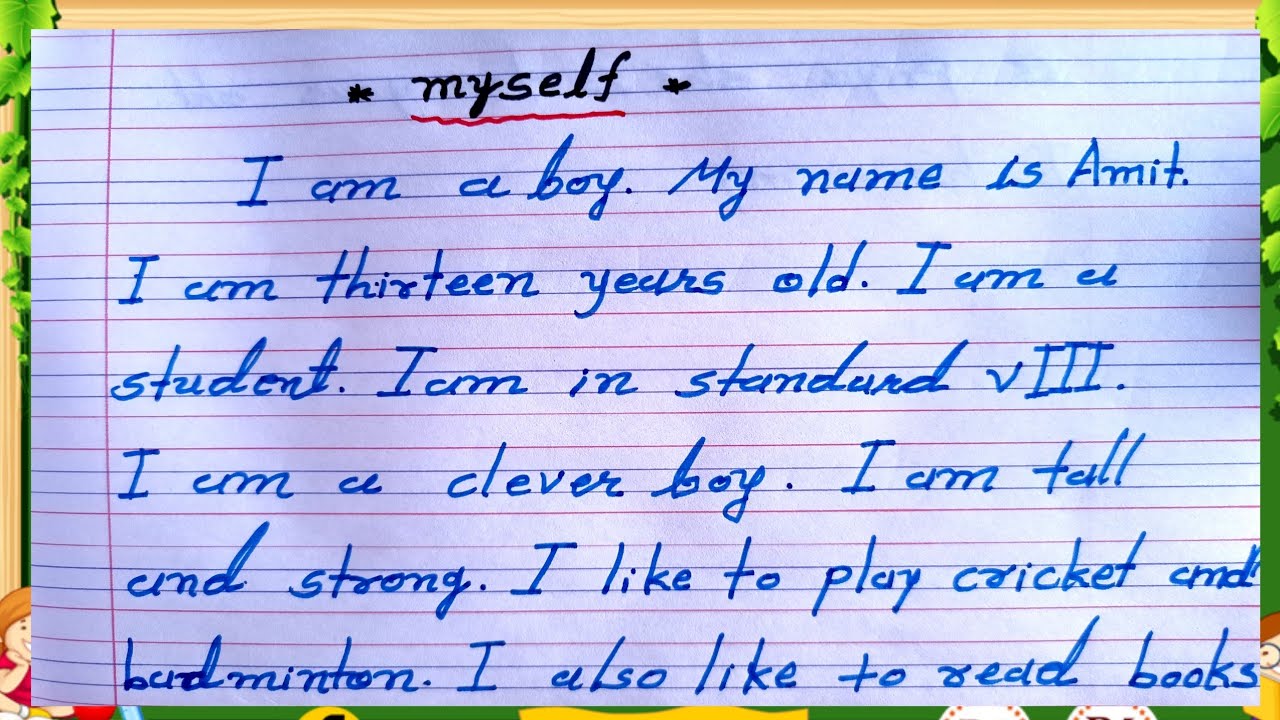 * myself *
I am a boy. My name is Amit.
I am thirteen years old. I am a
student. I am in standard VIII.
I am a clever boy. I am tall
and strong. I like to play cricket and
badminton. I also like to read books